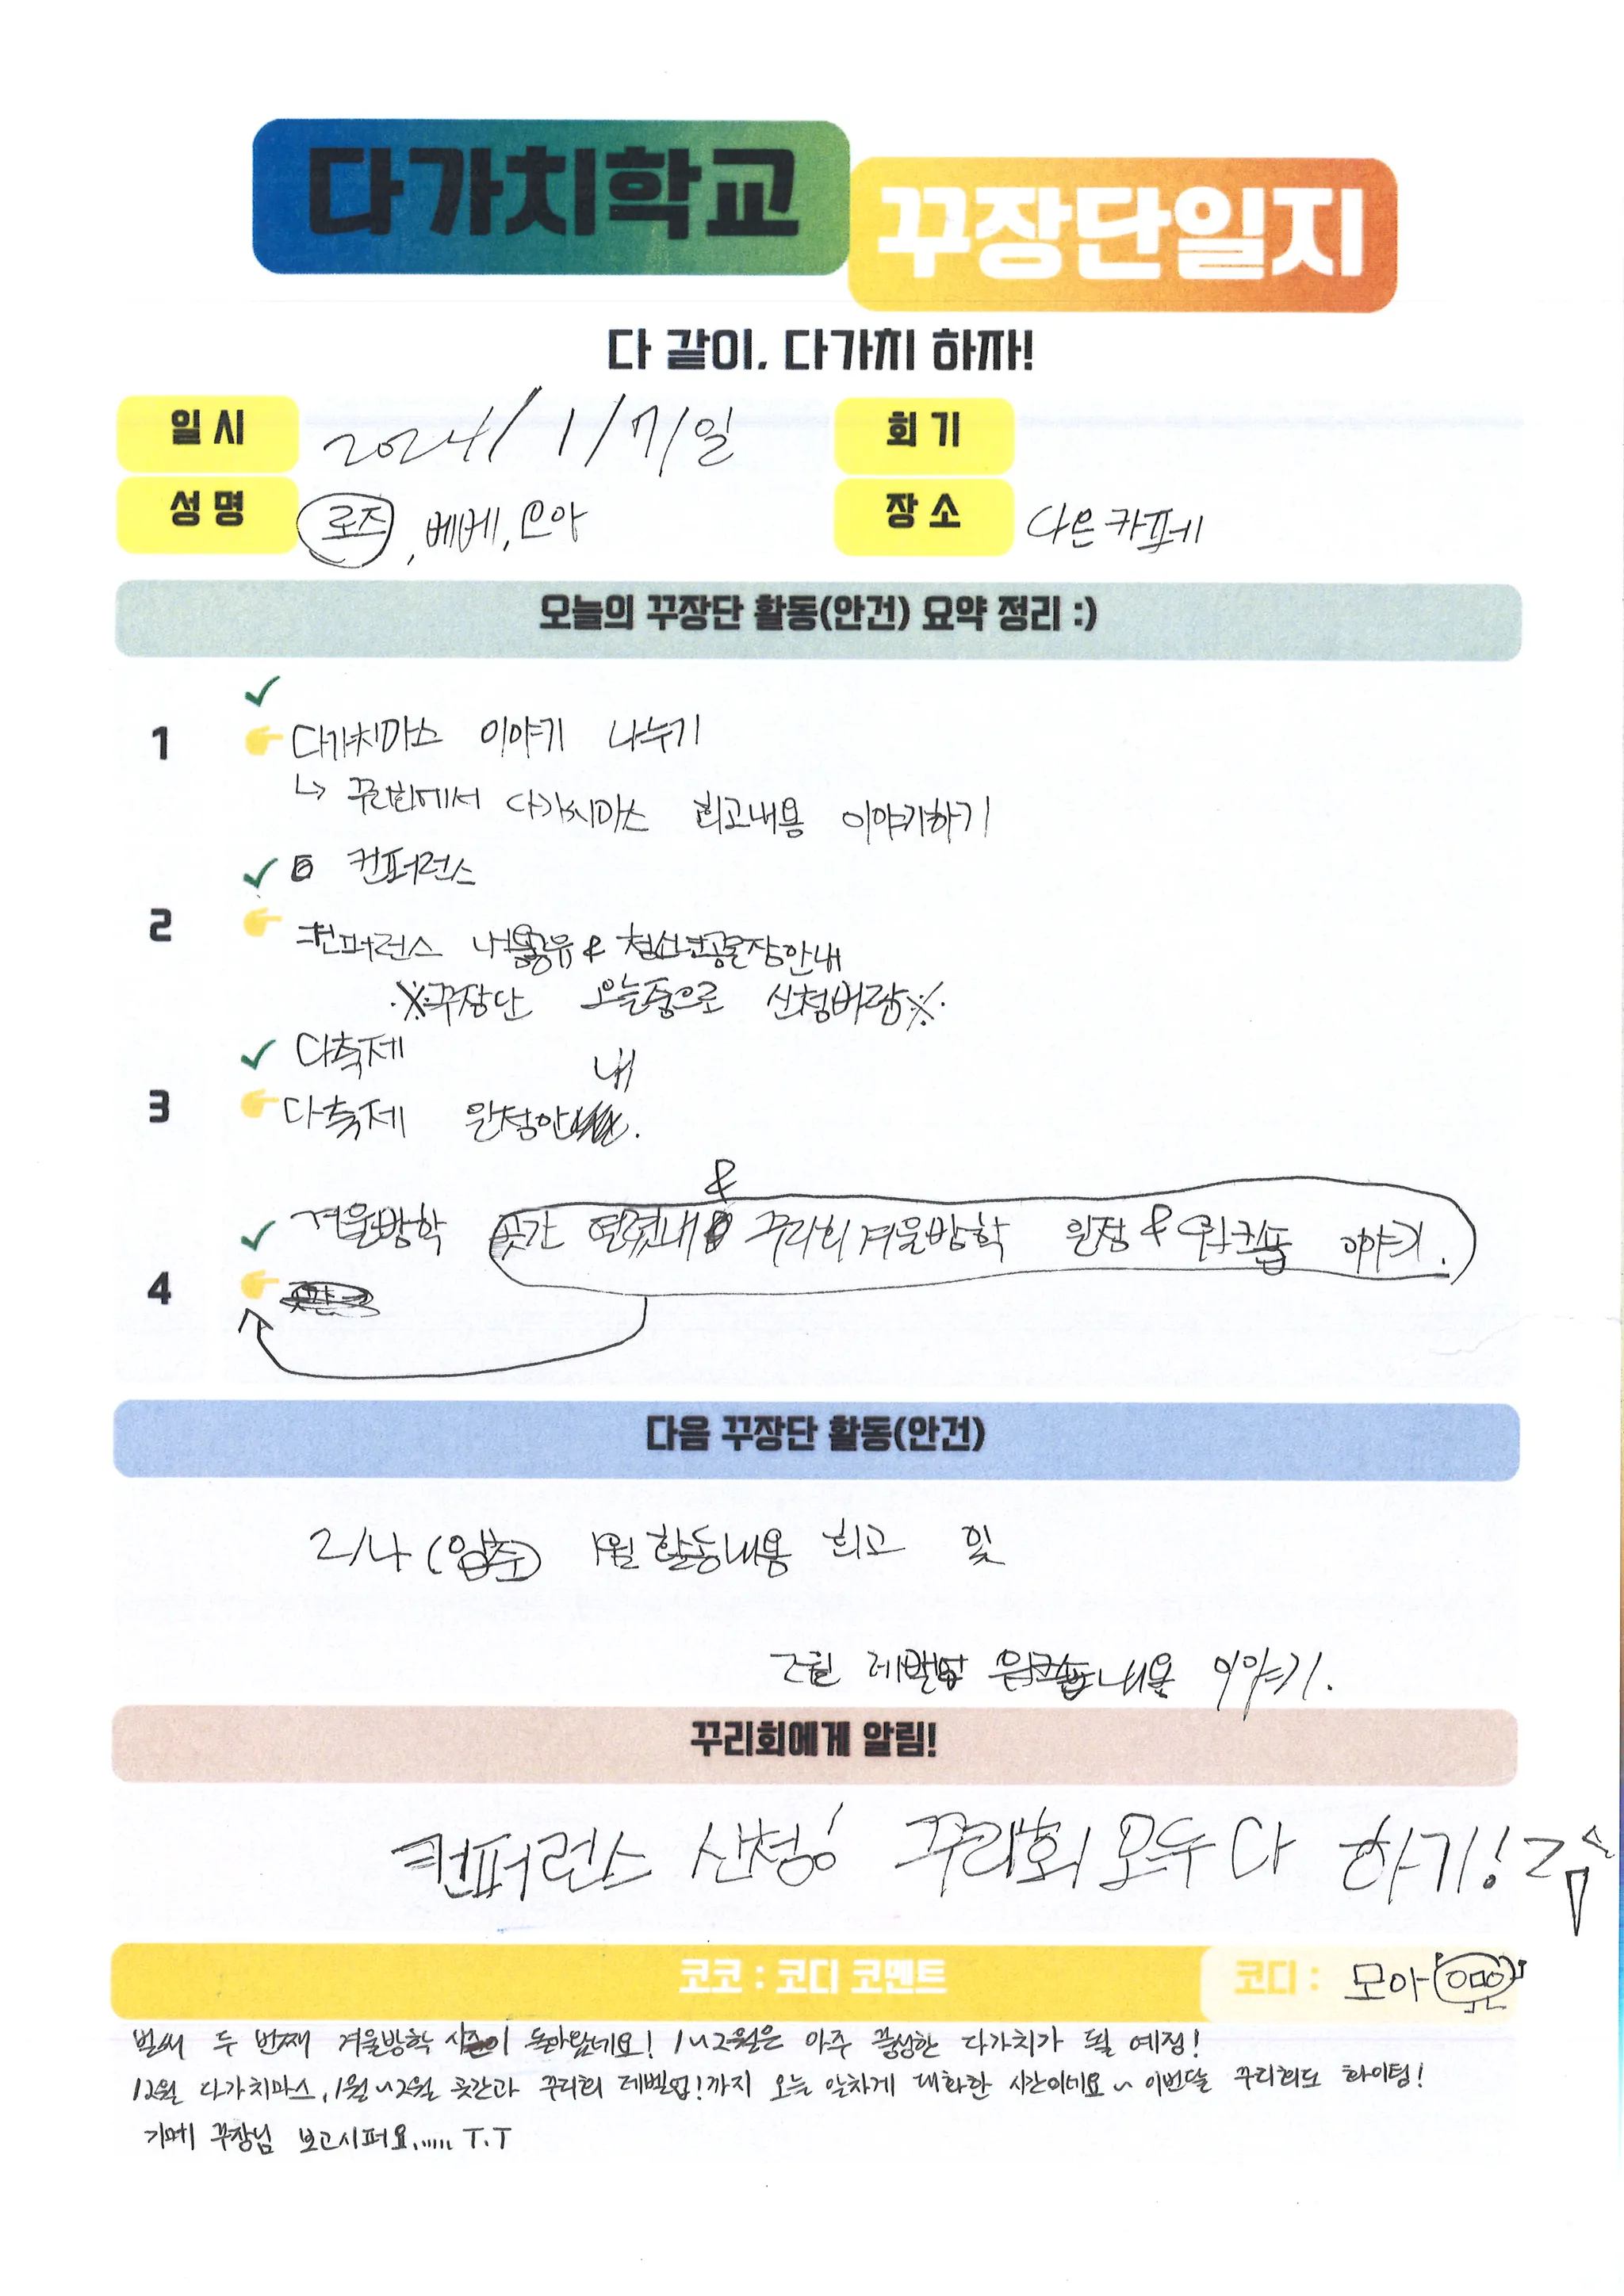 다가치학교
꾸장단일지
다 같이, 다가치 하자!
일시 2024/1/7/일 회기
성명 로즈, 베베, 모아 장소 다은카페
오늘의 꾸장단 활동(안건) 요약 정리 :)
1 다가치마스 이야기 나누기
↳ 꾸리회에서 다가치마스 회고내용 이야기하기
컨퍼런스
2 컨퍼런스 내용공유 & 청소년공론장안내
※꾸장단 오늘중으로 신청바람※
다축제
3 다축제 일정안내.
겨울방학 곳간 연령내 & 꾸리회겨울방학 일정 & 워크숍 이야기.
4
다음 꾸장단 활동(안건)
2/4 (입춘) 1월 활동내용 회고 및
2월 레벨업 워크숍내용 이야기.
꾸리회에게 알림!
컨퍼런스 신청! 꾸리회 모두 다 하기!
코코 : 코디 코멘트 코디 : 모아
벌써 두 번째 겨울방학 시즌이 돌아왔네요! 1~2월은 아주 풍성한 다가치가 될 예정!
12월 다가치마스, 1월~2월 곳간과 꾸리회 레벨업!까지 오늘 알차게 대화한 시간이네요~ 이번달 꾸리회도 화이팅!
기메 꾸장님 보고시퍼요...... T.T